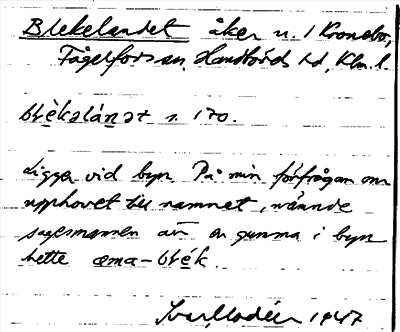 Blekelandet åker n. 1 Kronobo,
Fågelfors sn, Handbörds hd, Klm. l.
blèkəlánət s. 170.
Ligger vid byn. På min förfrågan om
upphovet till namnet, nämnde
sagesmannen att en gumma i byn
hette æma-blék.
Ivar Modéer 1947